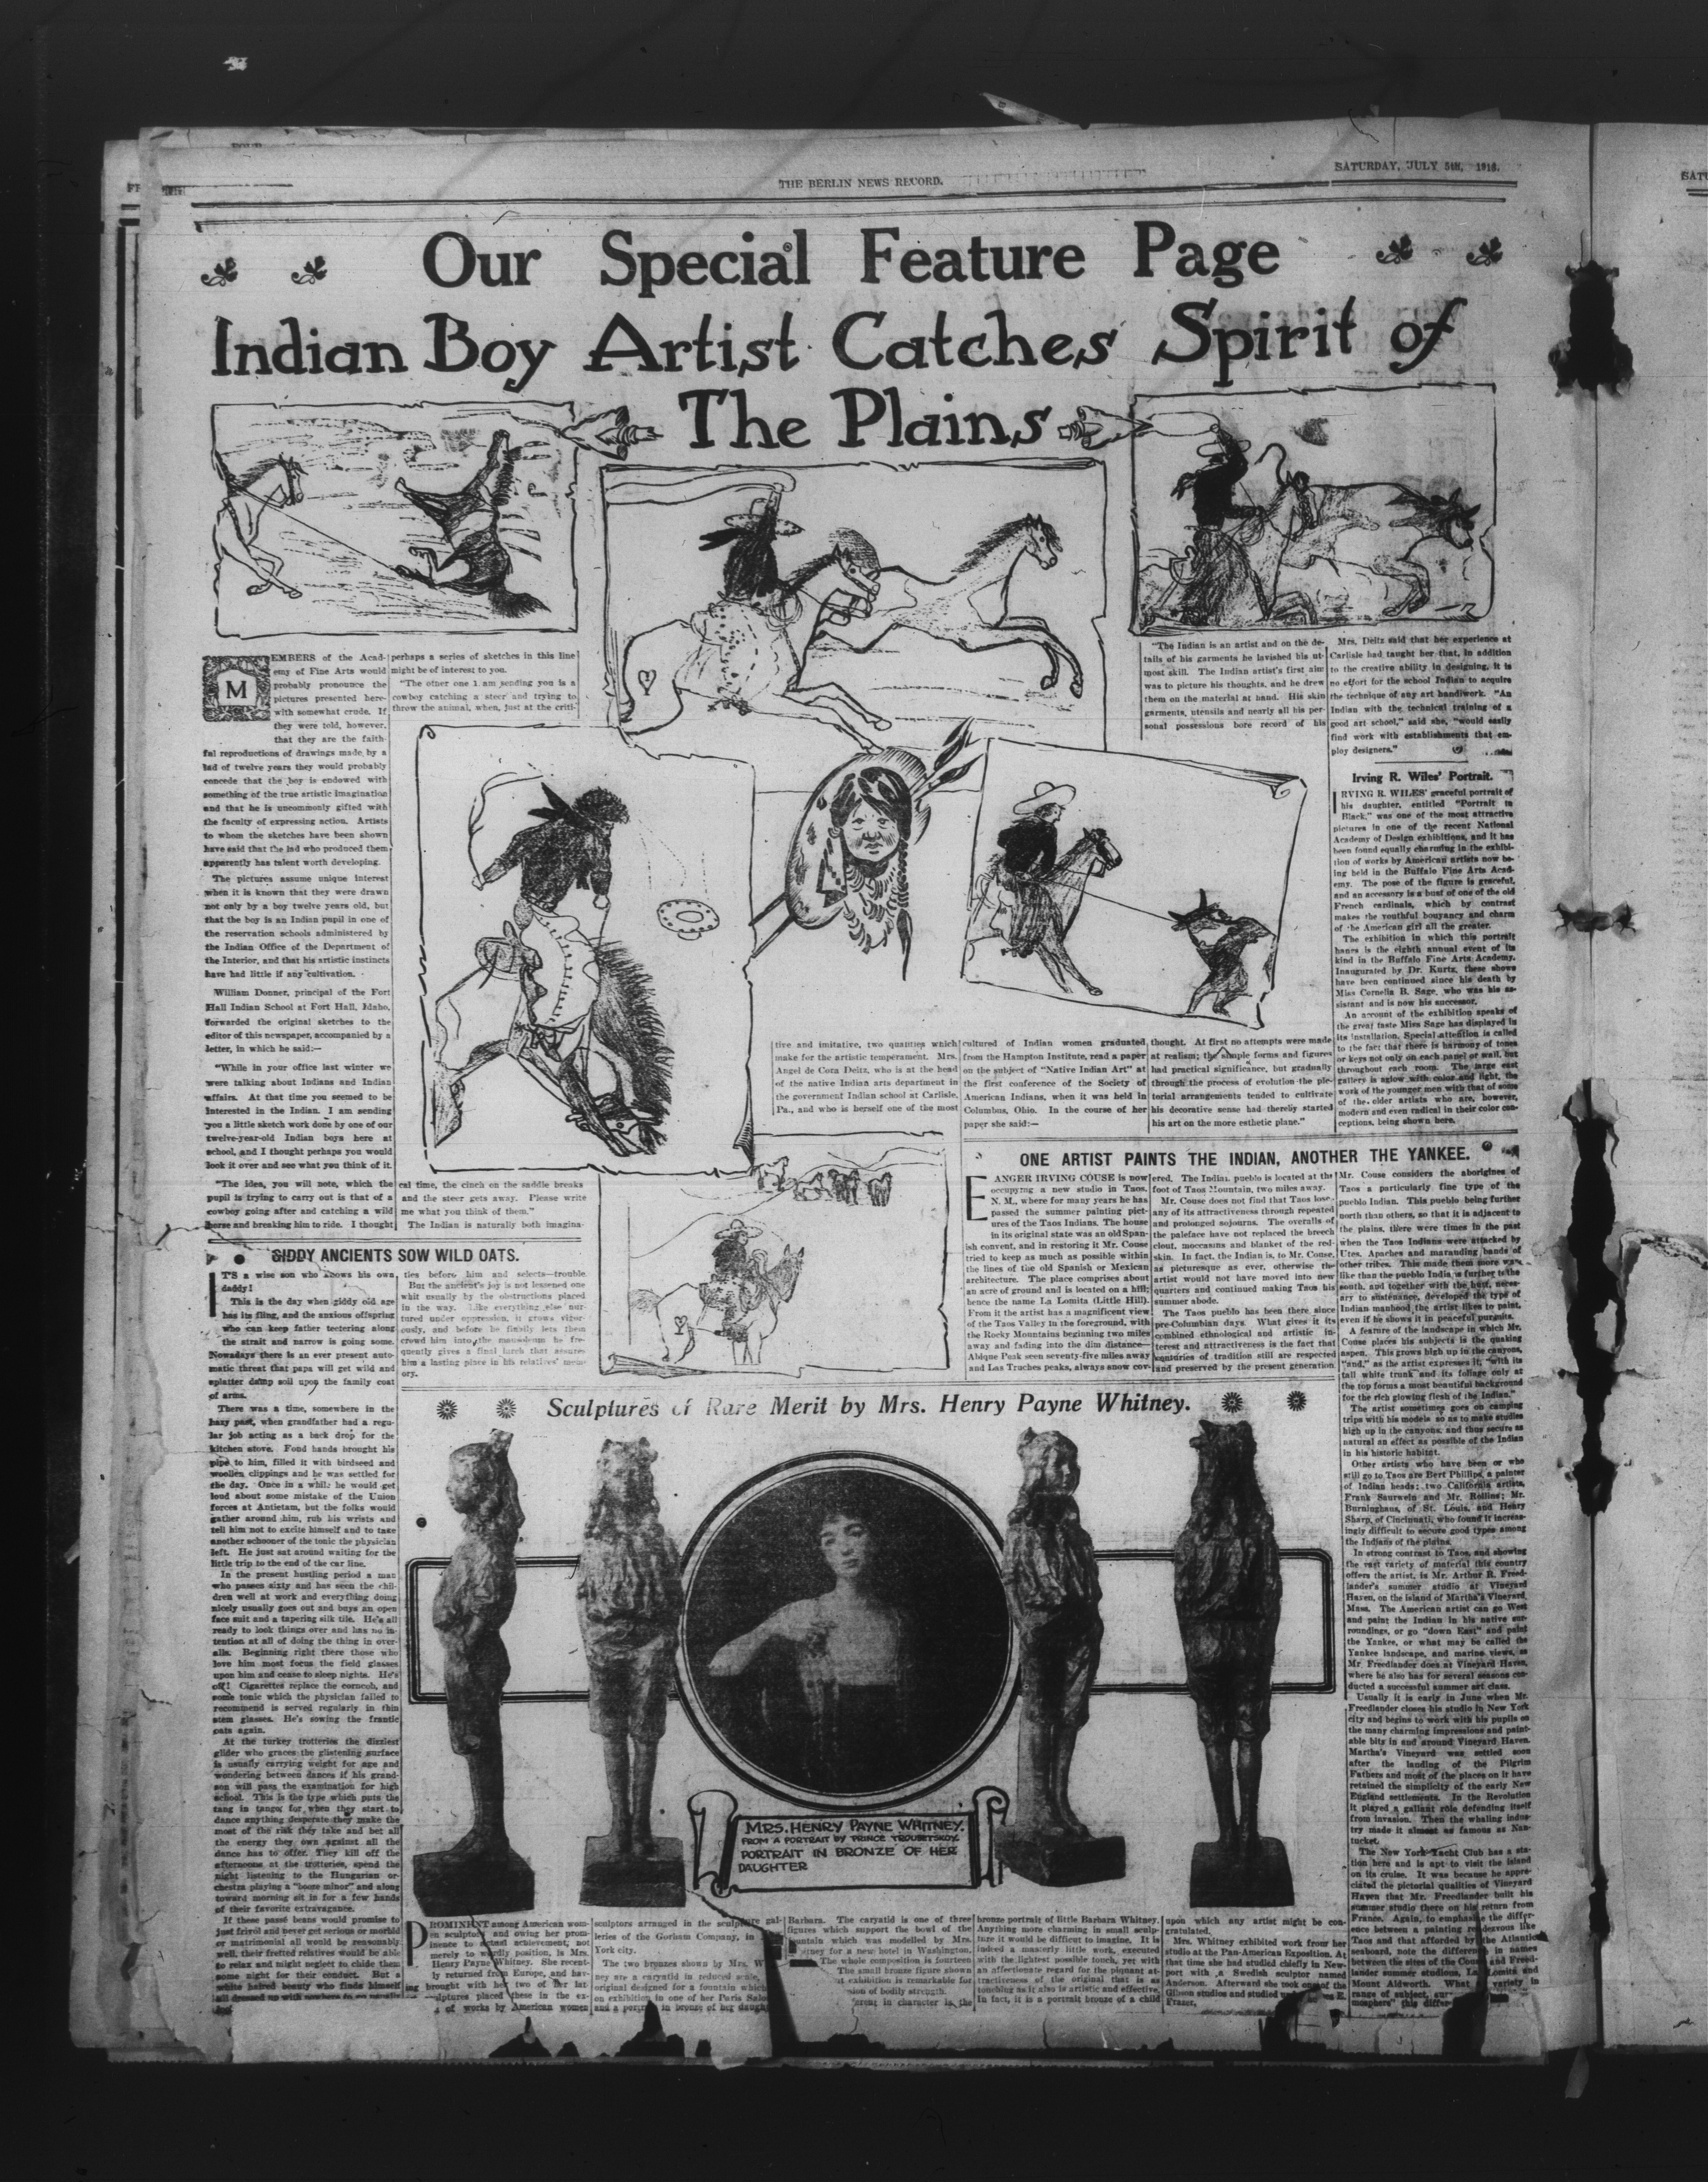 THE BERLIN NEWS RECORD.
SATURDAY, JULY 5th, 1913.
Our Special Feature Page
Indian Boy Artist Catches Spirit of
The Plains
MEMBERS of the Acad-
emy of Fine Arts would
probably pronounce the
pictures presented here-
with somewhat crude. If
they were told, however,
that they are the faith-
ful reproductions of drawings made by a
lad of twelve years they would probably
concede that the boy is endowed with
something of the true artistic imagination
and that he is uncommonly gifted with
the faculty of expressing action. Artists
to whom the sketches have been shown
have said that the lad who produced them
apparently has talent worth developing.
The pictures assume unique interest
when it is known that they were drawn
not only by a boy twelve years old, but
that the boy is an Indian pupil in one of
the reservation schools administered by
the Indian Office of the Department of
the Interior, and that his artistic instincts
have had little if any cultivation.
William Donner, principal of the Fort
Hall Indian School at Fort Hall, Idaho,
forwarded the original sketches to the
editor of this newspaper, accompanied by a
letter, in which he said:—
"While in your office last winter we
were talking about Indians and Indian
affairs. At that time you seemed to be
interested in the Indian. I am sending
you a little sketch work done by one of our
twelve-year-old Indian boys here at
school, and I thought perhaps you would
look it over and see what you think of it.
"The idea, you will note, which the
pupil is trying to carry out is that of a
cowboy going after and catching a wild
horse and breaking him to ride. I thought
perhaps a series of sketches in this line
might be of interest to you.
"The other one I am sending you is a
cowboy catching a steer and trying to
throw the animal, when, just at the criti-
cal time, the cinch on the saddle breaks
and the steer gets away. Please write
me what you think of them."
The Indian is naturally both imagina-
tive and imitative, two quanties which
make for the artistic temperament. Mrs.
Angel de Cora Deitz, who is at the head
of the native Indian arts department in
the government Indian school at Carlisle,
Pa., and who is herself one of the most
cultured of Indian women graduated
from the Hampton Institute, read a paper
on the subject of "Native Indian Art" at
the first conference of the Society of
American Indians, when it was held in
Columbus, Ohio. In the course of her
paper she said:—
"The Indian is an artist and on the de-
tails of his garments he lavished his ut-
most skill. The Indian artist's first aim
was to picture his thoughts, and he drew
them on the material at hand. His skin
garments, utensils and nearly all his per-
sonal possessions bore record of his
thought. At first no attempts were made
at realism; the simple forms and figures
had practical significance, but gradually
through the process of evolution the pic-
torial arrangements tended to cultivate
his decorative sense had thereby started
his art on the more esthetic plane."
Mrs. Deitz said that her experience at
Carlisle had taught her that, in addition
to the creative ability in designing, it is
no effort for the school Indian to acquire
the technique of any art handiwork. "An
Indian with the technical training of a
good art school," said she, "would easily
find work with establishments that em-
ploy designers."
Irving R. Wiles' Portrait.
IRVING R. WILES' graceful portrait of
his daughter, entitled "Portrait in
Black," was one of the most attractive
pictures in one of the recent National
Academy of Design exhibitions, and it has
been found equally charming in the exhibi-
tion of works by American artists now be-
ing held in the Buffalo Fine Arts Acad-
emy. The pose of the figure is graceful,
and an accessory is a bust of one of the old
French cardinals, which by contrast
makes the youthful bouyancy and charm
of the American girl all the greater.
The exhibition in which this portrait
hangs is the eighth annual event of its
kind in the Buffalo Fine Arts Academy.
Inaugurated by Dr. Kurtz, these shows
have been continued since his death by
Miss Cornelia B. Sage, who was his as-
sistant and is now his successor.
An account of the exhibition speaks of
the great taste Miss Sage has displayed in
its installation. Special attention is called
to the fact that there is harmony of tones
or keys not only on each panel or wall, but
throughout each room. The large east
gallery is aglow with color and light, the
work of the younger men with that of some
of the older artists who are, however,
modern and even radical in their color con-
ceptions, being shown here.
GIDDY ANCIENTS SOW WILD OATS.
IT'S a wise son who knows his own
daddy!
This is the day when giddy old age
has its fling, and the anxious offspring
who can keep father teetering along
the strait and narrow is going some.
Nowadays there is an ever present auto-
matic threat that papa will get wild and
splatter damp soil upon the family coat
of arms.
There was a time, somewhere in the
hazy past, when grandfather had a regu-
lar job acting as a back drop for the
kitchen stove. Fond hands brought his
pipe to him, filled it with birdseed and
woollen clippings and he was settled for
the day. Once in a while he would get
loud about some mistake of the Union
forces at Antietam, but the folks would
gather around him, rub his wrists and
tell him not to excite himself and to take
another schooner of the tonic the physician
left. He just sat around waiting for the
little trip to the end of the car line.
In the present hustling period a man
who passes sixty and has seen the chil-
dren well at work and everything doing
nicely usually goes out and buys an open
face suit and a tapering silk tile. He's all
ready to look things over and has no in-
tention at all of doing the thing in over-
alls. Beginning right there those who
love him most focus the field glasses
upon him and cease to sleep nights. He's
off! Cigarettes replace the corncob, and
some tonic which the physician failed to
recommend is served regularly in thin
stem glasses. He's sowing the frantic
oats again.
At the turkey trotteries the dizziest
glider who graces the glistening surface
is usually carrying weight for age and
wondering between dances if his grand-
son will pass the examination for high
school. This is the type which puts the
tang in tango; for when they start to
dance anything desperate they make the
most of the risk they take and bet all
the energy they own against all the
dance has to offer. They kill off the
afternoons at the trotteries, spend the
night listening to the Hungarian or-
chestra playing a "booze minor" and along
toward morning sit in for a few hands
of their favorite extravagance.
If these passé beans would promise to
just frivol and never get serious or morbid
or matrimonial all would be reasonably
well, their fretted relatives would be able
to relax and might neglect to chide them
some night for their conduct. But a
white haired beauty who finds himself
all dressed up with nowhere to go
ties before him and selects—trouble.
But the ancient's joy is not lessened one
whit usually by the obstructions placed
in the way. Like everything else nur-
tured under oppression, it grows vigor-
ously, and before he finally lets them
crowd him into the mausoleum he fre-
quently gives a final lurch that assures
him a lasting place in his relatives' mem-
ory.
ONE ARTIST PAINTS THE INDIAN, ANOTHER THE YANKEE.
EANGER IRVING COUSE is now
occupying a new studio in Taos,
N. M., where for many years he has
passed the summer painting pict-
ures of the Taos Indians. The house
in its original state was an old Span-
ish convent, and in restoring it Mr. Couse
tried to keep as much as possible within
the lines of the old Spanish or Mexican
architecture. The place comprises about
an acre of ground and is located on a hill;
hence the name La Lomita (Little Hill).
From it the artist has a magnificent view
of the Taos Valley in the foreground, with
the Rocky Mountains beginning two miles
away and fading into the dim distance—
Abique Peak seen seventy-five miles away
and Las Truches peaks, always snow cov-
ered. The Indian pueblo is located at the
foot of Taos Mountain, two miles away.
Mr. Couse does not find that Taos loses
any of its attractiveness through repeated
and prolonged sojourns. The overalls of
the paleface have not replaced the breech
clout, moccasins and blanket of the red-
skin. In fact, the Indian is, to Mr. Couse,
as picturesque as ever, otherwise the
artist would not have moved into new
quarters and continued making Taos his
summer abode.
The Taos pueblo has been there since
pre-Columbian days. What gives it its
combined ethnological and artistic in-
terest and attractiveness is the fact that
centuries of tradition still are respected
and preserved by the present generation.
Mr. Couse considers the aborigines of
Taos a particularly fine type of the
pueblo Indian. This pueblo being further
north than others, so that it is adjacent to
the plains, there were times in the past
when the Taos Indians were attacked by
Utes, Apaches and marauding bands of
other tribes. This made them more war-
like than the pueblo Indians further to the
south, and together with the hunt, neces-
ary to sustenance, developed the type of
Indian manhood the artist likes to paint,
even if he shows it in peaceful pursuits.
A feature of the landscape in which Mr.
Couse places his subjects is the quaking
aspen. This grows high up in the canyons,
"and," as the artist expresses it, "with its
tall white trunk and its foliage only at
the top forms a most beautiful background
for the rich glowing flesh of the Indian."
The artist sometimes goes on camping
trips with his models so as to make studies
high up in the canyons, and thus secure as
natural an effect as possible of the Indian
in his historic habitat.
Other artists who have been or who
still go to Taos are Bert Phillips, a painter
of Indian heads; two California artists,
Frank Saurwein and Mr. Rollins; Mr.
Burninghaus, of St. Louis, and Henry
Sharp, of Cincinnati, who found it increas-
ingly difficult to secure good types among
the Indians of the plains.
In strong contrast to Taos, and showing
the vast variety of material this country
offers the artist, is Mr. Arthur R. Freed-
lander's summer studio at Vineyard
Haven, on the island of Martha's Vineyard,
Mass. The American artist can go West
and paint the Indian in his native sur-
roundings, or go "down East" and paint
the Yankee, or what may be called the
Yankee landscape, and marine views, as
Mr. Freedlander does at Vineyard Haven,
where he also has for several seasons con-
ducted a successful summer art class.
Usually it is early in June when Mr.
Freedlander closes his studio in New York
city and begins to work with his pupils on
the many charming impressions and paint-
able bits in and around Vineyard Haven.
Martha's Vineyard was settled soon
after the landing of the Pilgrim
Fathers and most of the places on it have
retained the simplicity of the early New
England settlements. In the Revolution
it played a gallant rôle defending itself
from invasion. Then the whaling indus-
try made it almost as famous as Nan-
tucket.
The New York Yacht Club has a sta-
tion here and is apt to visit the island
on its cruise. It was because he appre-
ciated the pictorial qualities of Vineyard
Haven that Mr. Freedlander built his
summer studio there on his return from
France. Again, to emphasize the differ-
ence between a painting rendezvous like
Taos and that afforded by the Atlantic
seaboard, note the difference in names
between the sites of the Couse and Freed-
lander summer studios, La Lomita and
Mount Aldworth. What variety in
range of subject,
mosphere" this
Sculptures of Rare Merit by Mrs. Henry Payne Whitney.
MRS. HENRY PAYNE WHITNEY.
FROM A PORTRAIT BY PRINCE TROUBETSKOY.
PORTRAIT IN BRONZE OF HER
DAUGHTER
PROMINENT among American wom-
en sculptors and owing her prom-
inence to actual achievement, not
merely to worldly position, is Mrs.
Henry Payne Whitney. She recent-
ly returned from Europe, and hav-
ing brought with her two of her lat
sculptures placed these in the ex-
of works by American women
sculptors arranged in the sculpture gal-
leries of the Gorham Company, in
York city.
The two bronzes shown by Mrs. W
ney are a caryatid in reduced scale,
original designed for a fountain which
on exhibition in one of her Paris Salo
and a portrait in bronze of her daugh
Barbara. The caryatid is one of three
figures which support the bowl of the
fountain which was modelled by Mrs.
for a new hotel in Washington.
The whole composition is fourteen
The small bronze figure shown
at exhibition is remarkable for
sion of bodily strength.
in character is the
bronze portrait of little Barbara Whitney.
Anything more charming in small sculp-
ture it would be difficult to imagine. It is
indeed a masterly little work, executed
with the lightest possible touch, yet with
an affectionate regard for the piquant at-
tractiveness of the original that is as
touching as it also is artistic and effective.
In fact, it is a portrait bronze of a child
upon which any artist might be con-
gratulated.
Mrs. Whitney exhibited work from her
studio at the Pan-American Exposition. At
that time she had studied chiefly in New-
port with a Swedish sculptor named
Anderson. Afterward she took one of the
Gibson studios and studied E.
Frazer.